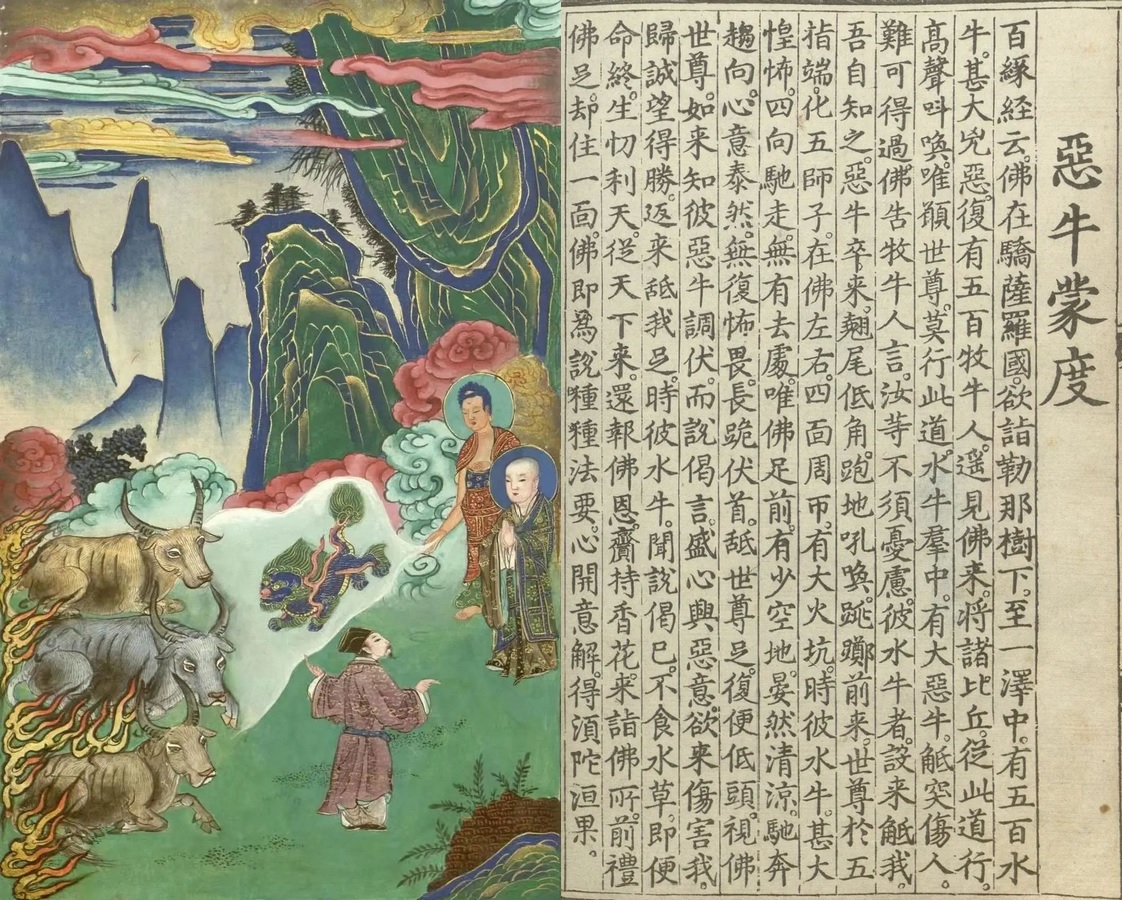 惡牛蒙度
百緣經云。佛在驕薩羅國。欲詣勒那樹下。至一澤中。有五百水
牛。甚大兇惡。復有五百牧牛人。遥見佛来。将諸比丘。從此道行。
高聲呌喚。唯願世尊。莫行此道。水牛羣中。有大惡牛。觝突傷人。
難可得過。佛告牧牛人言。汝等不須憂慮。彼水牛者。設来觝我。
吾自知之。惡牛卒来。翹尾低角。跑地吼喚。跳躑前来。世尊於五
指端。化五師子。在佛左右。四面周帀。有大火坑。時彼水牛。甚大
惶怖。四向馳走。無有去處。唯佛足前。有少空地。晏然清涼。馳奔
趨向。心意泰然。無復怖畏。長跪伏首。舐世尊足。復便低頭。視佛
世尊。如来知彼惡牛調伏。而說偈言。盛心興惡意。欲来傷害我。
歸誠望得勝。返来舐我足。時彼水牛。聞說偈已。不食水草。即便
命終。生忉利天。從天下来。還報佛恩。齎持香花。来詣佛所。前禮
佛足。却住一面。佛即為說種種法要。心開意解。得湏陀洹果。